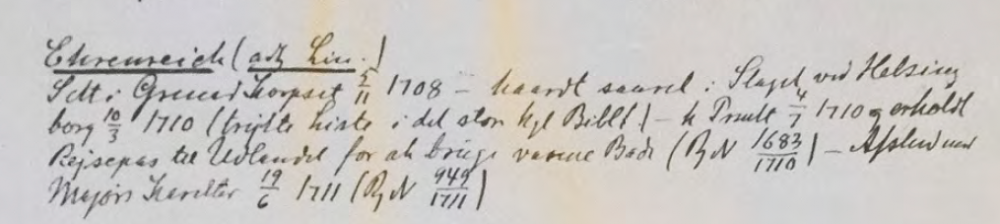 Ehrenreich (
Sekt: Grenad Korpset 5/11 1708 – haardt saaret i Slaget ved Helsing
borg 10/3 1710 (trykte liste i det store kgl Bibl.) – 4/7 1710 og erholdt
Rejsepas til Udlandet for at bruge varme Bade (RN 1683/1710) – Afsked med
Majors Karakter 19/6 1711 (RN 949/1711)